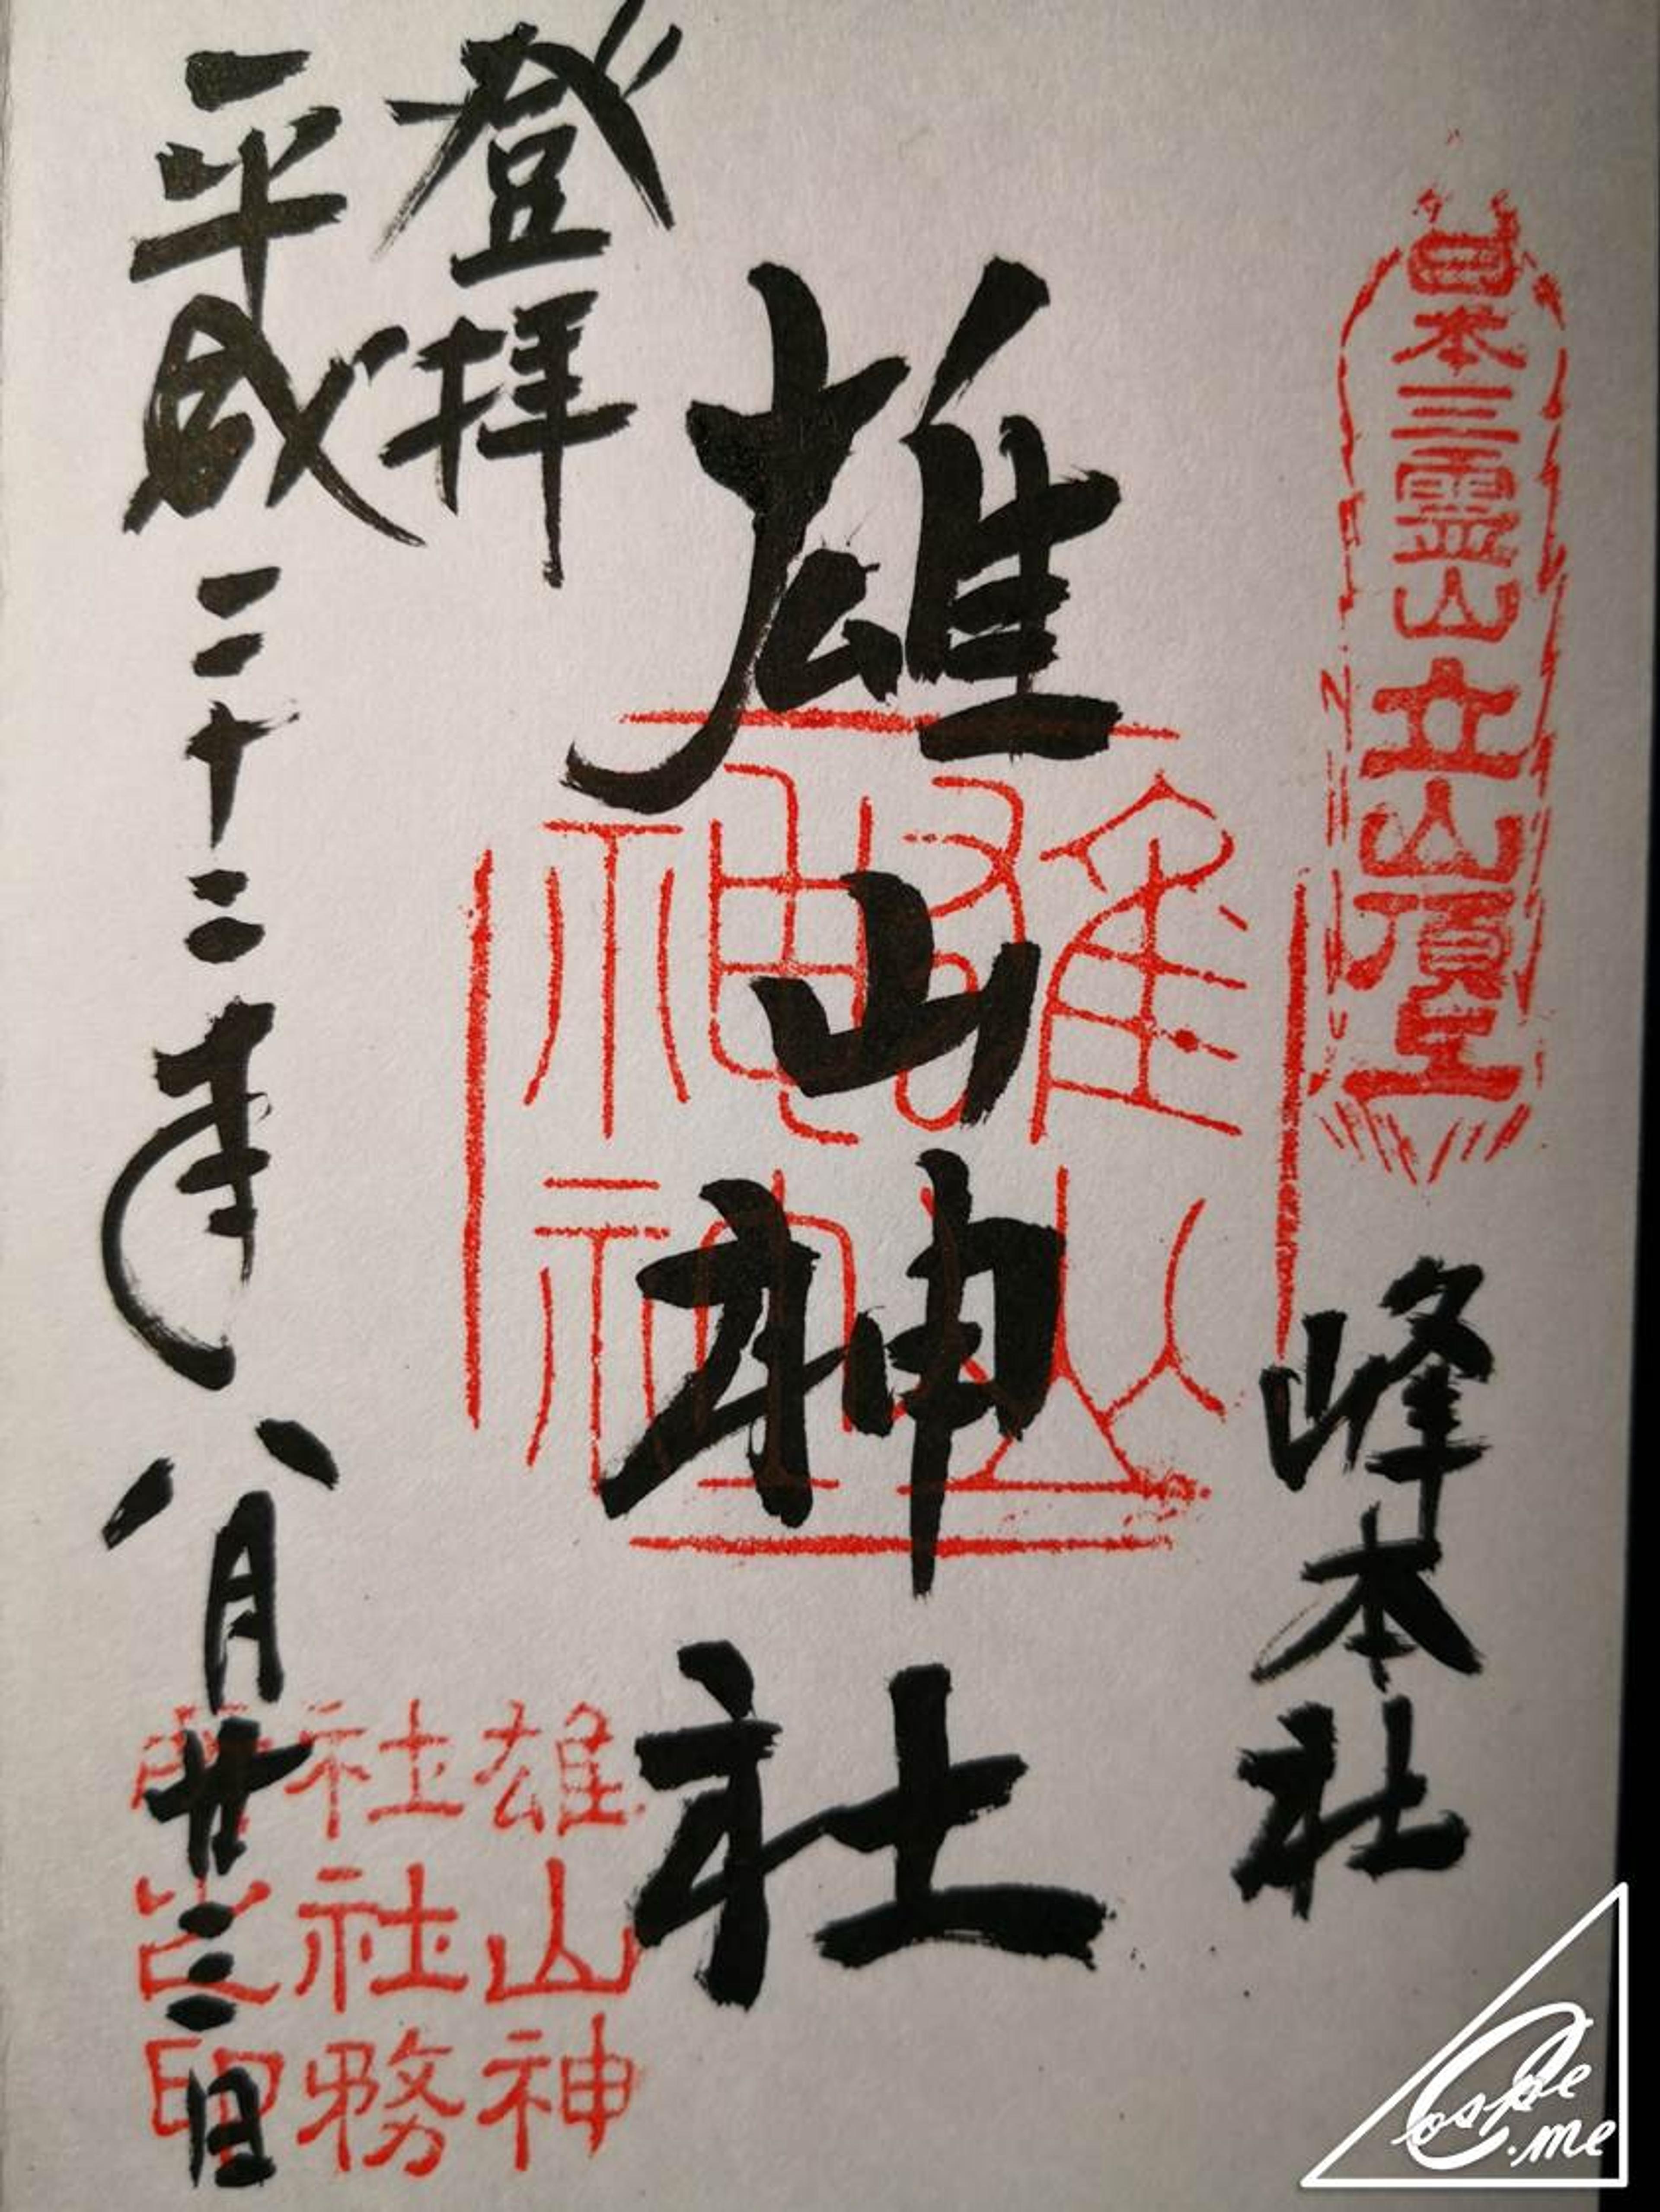 日本三霊山立山頂上
峰本社
雄山神社
雄山
神社
登拝
平成二十二年八月廿二日
雄山神
社社務
所之印
Cospe.me